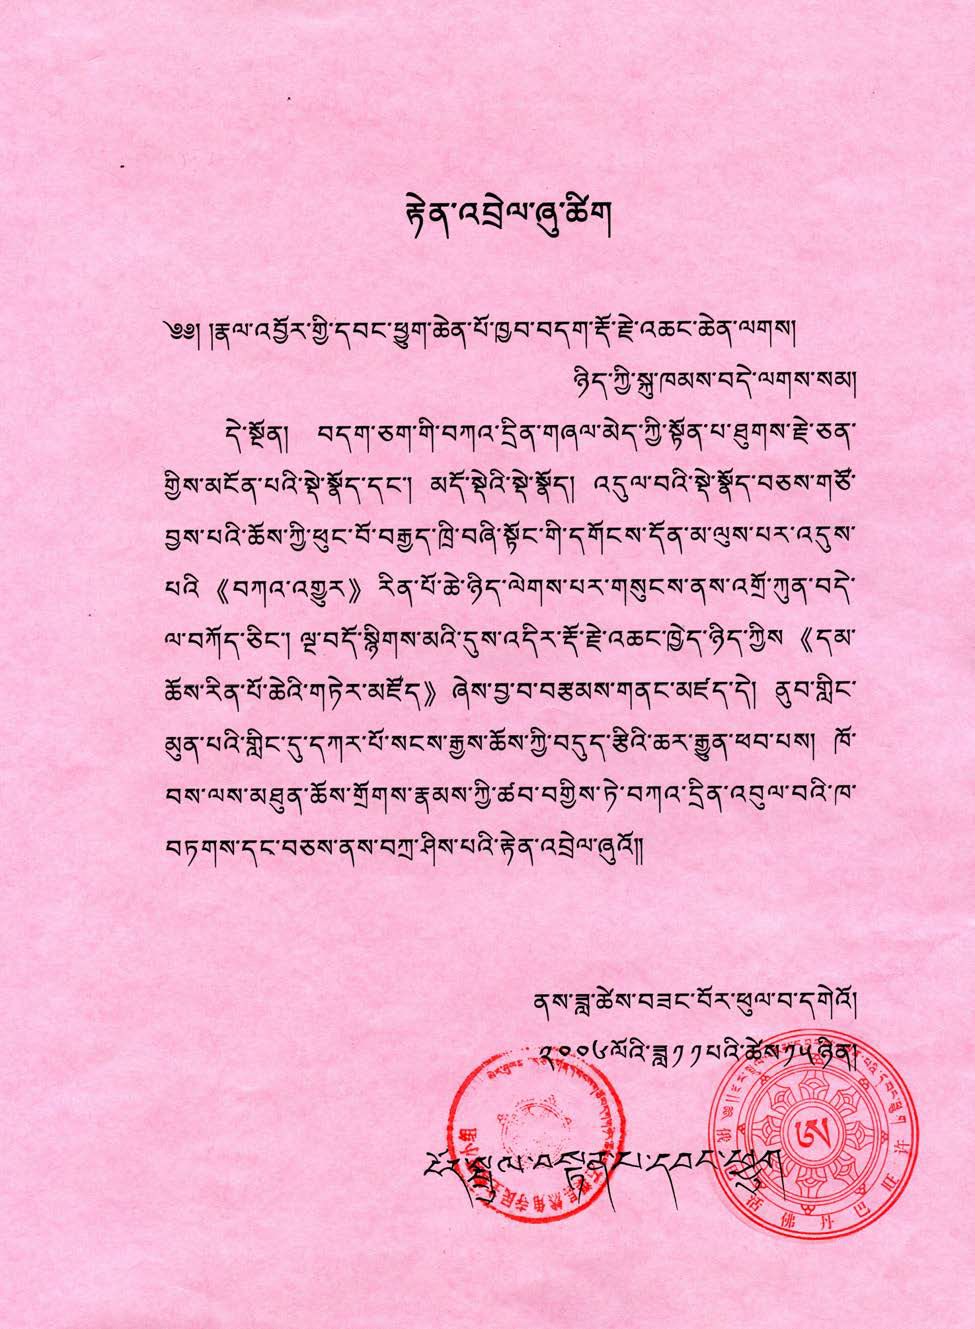 རྟེན་འབྲེལ་ཞུ་ཚིག
༄༅། །རྣལ་འབྱོར་གྱི་དབང་ཕྱུག་ཆེན་པོ་ཁྱབ་བདག་རྡོ་རྗེ་འཆང་ཆེན་ལགས།
ཉིད་ཀྱི་སྐུ་ཁམས་བདེ་ལགས་སམ།
དེ་སྔོན། བདག་ཅག་གི་བཀའ་དྲིན་གཞལ་མེད་ཀྱི་སྟོན་པ་ཐུགས་རྗེ་ཅན་
གྱིས་མངོན་པའི་སྡེ་སྣོད་དང་། མདོ་སྡེའི་སྡེ་སྣོད། འདུལ་བའི་སྡེ་སྣོད་བཅས་གཙོ་
བྱས་པའི་ཆོས་ཀྱི་ཕུང་པོ་བརྒྱད་ཁྲི་བཞི་སྟོང་གི་དགོངས་དོན་མ་ལུས་པར་འདུས་
པའི 《བཀའ་འགྱུར》 རིན་པོ་ཆེ་ཉིད་ལེགས་པར་གསུངས་ནས་འགྲོ་ཀུན་བདེ་
ལ་བཀོད་ཅིང་། ལྔ་བདོ་སྙིགས་མའི་དུས་འདིར་རྡོ་རྗེ་འཆང་ཁྱེད་ཉིད་ཀྱིས 《དམ་
ཆོས་རིན་པོ་ཆེའི་གཏེར་མཛོད》 ཞེས་བྱ་བ་བརྩམས་གནང་མཛད་དེ། ནུབ་གླིང་
མུན་པའི་གླིང་དུ་དཀར་པོ་སངས་རྒྱས་ཆོས་ཀྱི་བདུད་རྩིའི་ཆར་རྒྱུན་ཕབ་པས། ཁོ་
བས་ལས་མཐུན་ཆོས་གྲོགས་རྣམས་ཀྱི་ཚབ་བགྱིས་ཏེ་བཀའ་དྲིན་འབུལ་བའི་ཁ་
བཏགས་དང་བཅས་ནས་བཀྲ་ཤིས་པའི་རྟེན་འབྲེལ་ཞུའོ།།
ནས་ཟླ་ཚེས་བཟང་པོར་ཕུལ་བ་དགེའོ།
༢༠༠༦ལོའི་ཟླ༡༡པའི་ཚེས༡༥ཉིན།
ངོར་སྤྲུལ་བསྟན་པ་དབང་ཕྱུག
ཨ
活佛丹巴